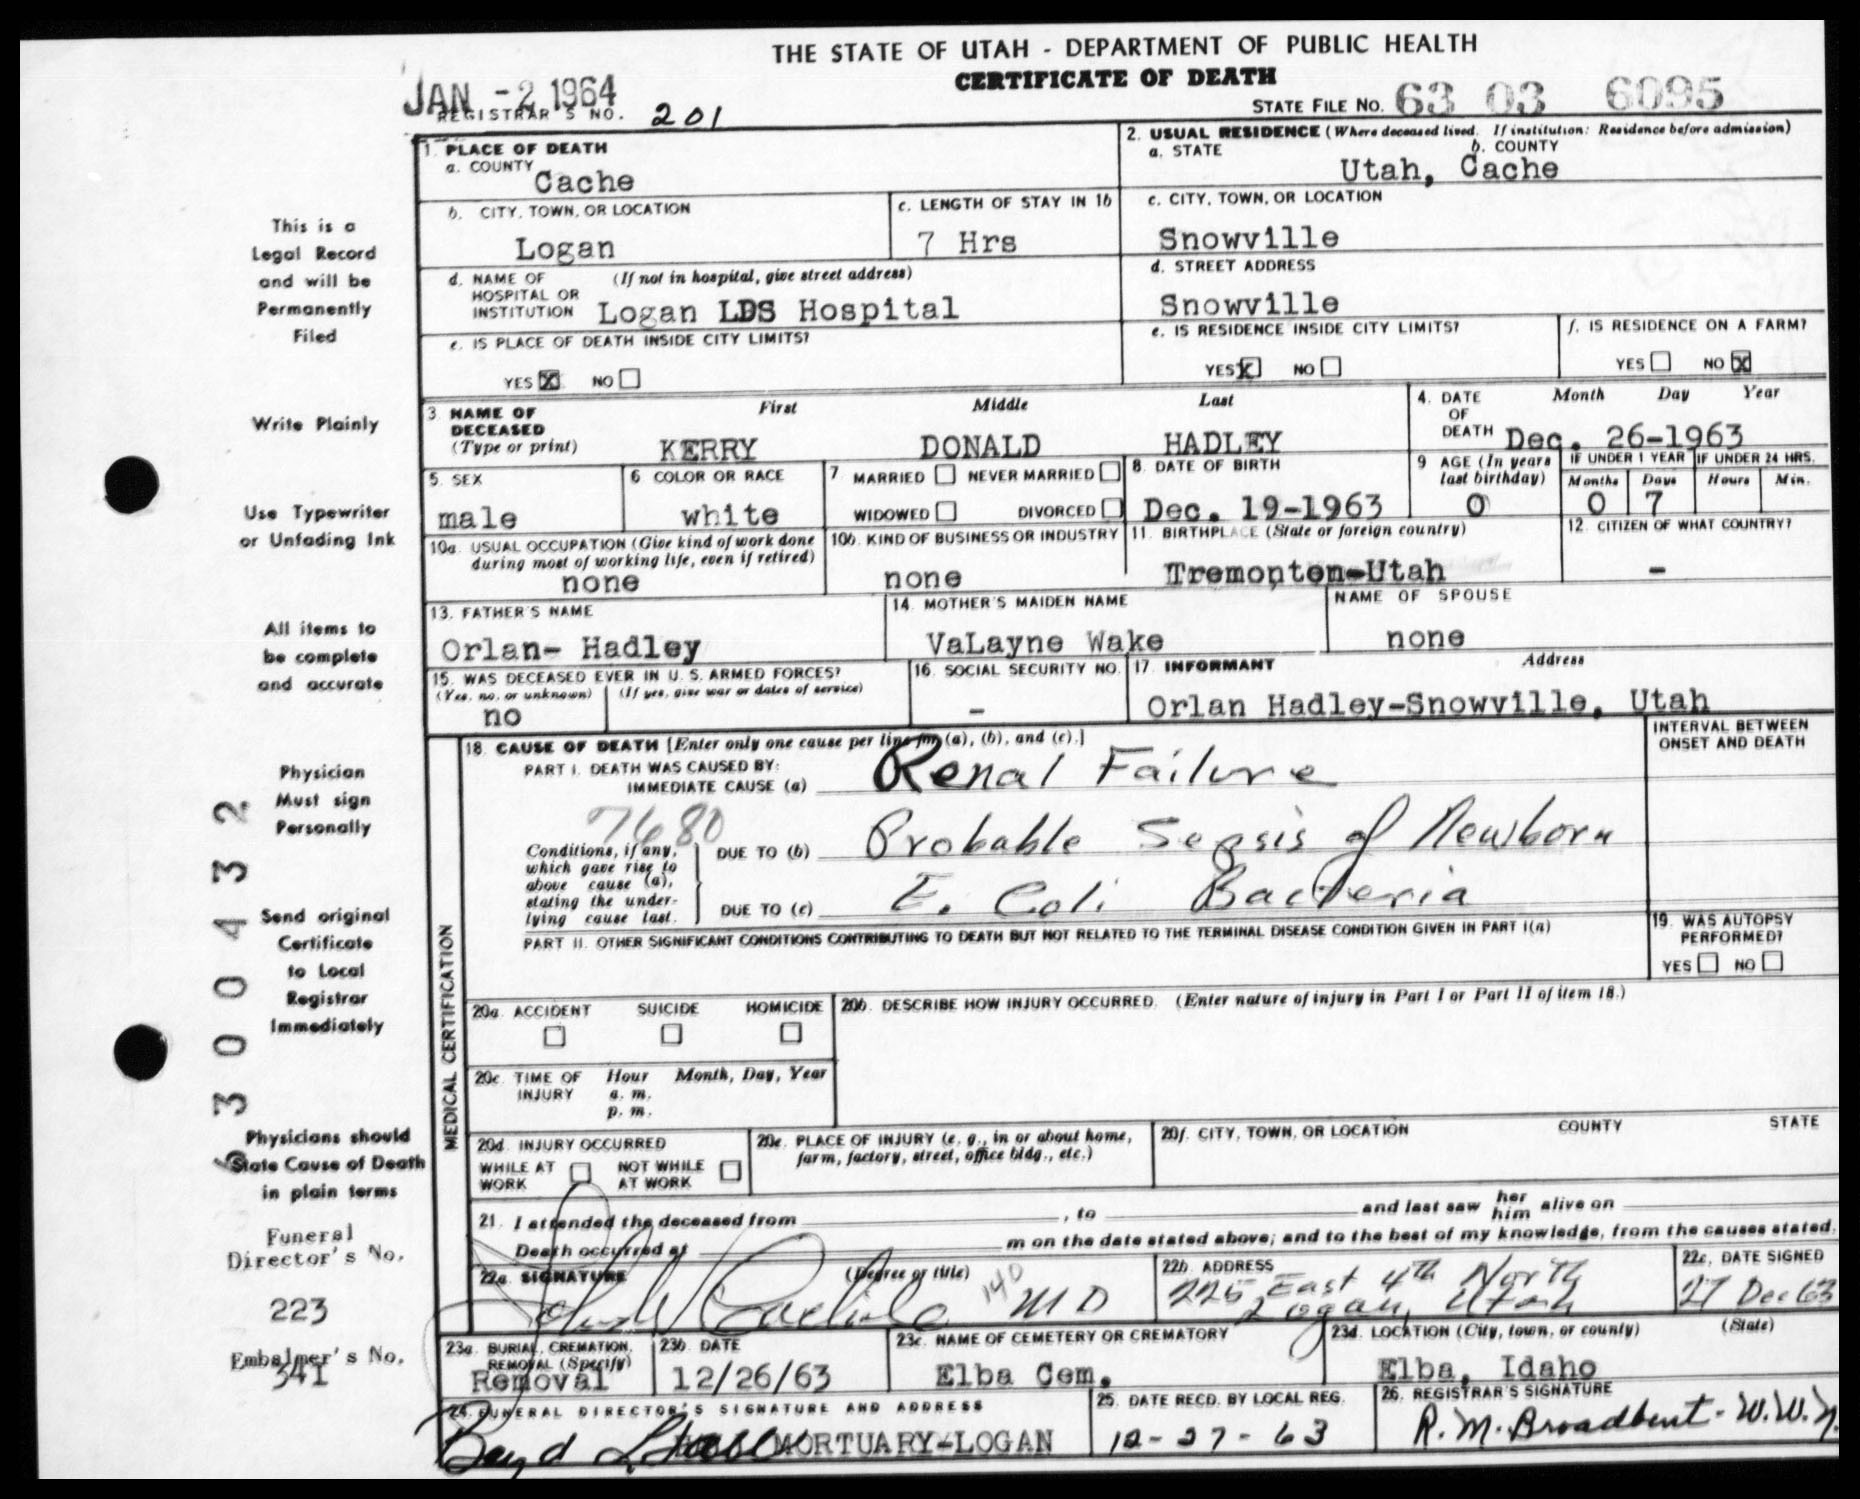 THE STATE OF UTAH - DEPARTMENT OF PUBLIC HEALTH
CERTIFICATE OF DEATH
JAN -2 1964
REGISTRAR'S NO. 201
STATE FILE NO. 63 03 6095
This is a
Legal Record
and will be
Permanently
Filed
Write Plainly
Use Typewriter
or Unfading Ink
All items to
be complete
and accurate
Physician
Must sign
Personally
Send original
Certificate
to Local
Registrar
Immediately
Physicians should
State Cause of Death
in plain terms
Funeral
Director's No.
223
Embalmer's No.
341
6300432
1. PLACE OF DEATH
a. COUNTY Cache
b. CITY, TOWN, OR LOCATION
Logan
c. LENGTH OF STAY IN 1b
7 Hrs
d. NAME OF HOSPITAL OR INSTITUTION (If not in hospital, give street address)
Logan LDS Hospital
e. IS PLACE OF DEATH INSIDE CITY LIMITS?
YES X NO
2. USUAL RESIDENCE (Where deceased lived. If institution: Residence before admission)
a. STATE b. COUNTY
Utah, Cache
c. CITY, TOWN, OR LOCATION
Snowville
d. STREET ADDRESS
Snowville
e. IS RESIDENCE INSIDE CITY LIMITS?
YES X NO
f. IS RESIDENCE ON A FARM?
YES NO X
3. NAME OF DECEASED (Type or print) First Middle Last
KERRY DONALD HADLEY
4. DATE OF DEATH Month Day Year
Dec. 26-1963
5. SEX
male
6 COLOR OR RACE
white
7 MARRIED NEVER MARRIED
WIDOWED DIVORCED
8. DATE OF BIRTH
Dec. 19-1963
9 AGE (In years last birthday)
0
IF UNDER 1 YEAR IF UNDER 24 HRS.
Months Days Hours Min.
0 7
10a. USUAL OCCUPATION (Give kind of work done during most of working life, even if retired)
none
10b. KIND OF BUSINESS OR INDUSTRY
none
11. BIRTHPLACE (State or foreign country)
Tremonton-Utah
12. CITIZEN OF WHAT COUNTRY?
-
13. FATHER'S NAME
Orlan- Hadley
14. MOTHER'S MAIDEN NAME
VaLayne Wake
NAME OF SPOUSE
none
15. WAS DECEASED EVER IN U. S. ARMED FORCES?
(Yes, no, or unknown) (If yes, give war or dates of service)
no
16. SOCIAL SECURITY NO.
-
17. INFORMANT Address
Orlan Hadley-Snowville, Utah
MEDICAL CERTIFICATION
18. CAUSE OF DEATH [Enter only one cause per line for (a), (b), and (c).]
INTERVAL BETWEEN ONSET AND DEATH
PART I. DEATH WAS CAUSED BY:
IMMEDIATE CAUSE (a) Renal Failure
7680
Conditions, if any, which gave rise to above cause (a), stating the underlying cause last.
DUE TO (b) Probable Sepsis of Newborn
DUE TO (c) E. Coli Bacteria
PART II. OTHER SIGNIFICANT CONDITIONS CONTRIBUTING TO DEATH BUT NOT RELATED TO THE TERMINAL DISEASE CONDITION GIVEN IN PART I(a)
19. WAS AUTOPSY PERFORMED?
YES NO
20a. ACCIDENT SUICIDE HOMICIDE
20b. DESCRIBE HOW INJURY OCCURRED. (Enter nature of injury in Part I or Part II of item 18.)
20c. TIME OF INJURY Hour Month, Day, Year
a. m.
p. m.
20d. INJURY OCCURRED
WHILE AT WORK NOT WHILE AT WORK
20e. PLACE OF INJURY (e. g., in or about home, farm, factory, street, office bldg., etc.)
20f. CITY, TOWN, OR LOCATION COUNTY STATE
21. I attended the deceased from , to and last saw her him alive on
Death occurred at m on the date stated above; and to the best of my knowledge, from the causes stated.
22a. SIGNATURE (Degree or title)
John Carlisle 140 MD
22b. ADDRESS
225 East 4th North
Logan, Utah
22c. DATE SIGNED
27 Dec 63
23a. BURIAL, CREMATION, REMOVAL (Specify)
Removal
23b. DATE
12/26/63
23c. NAME OF CEMETERY OR CREMATORY
Elba Cem.
23d. LOCATION (City, town, or county) (State)
Elba, Idaho
24. FUNERAL DIRECTOR'S SIGNATURE AND ADDRESS
Boyd MORTUARY-LOGAN
25. DATE RECD. BY LOCAL REG.
12-27-63
26. REGISTRAR'S SIGNATURE
R. M. Broadbent - W.W.N.